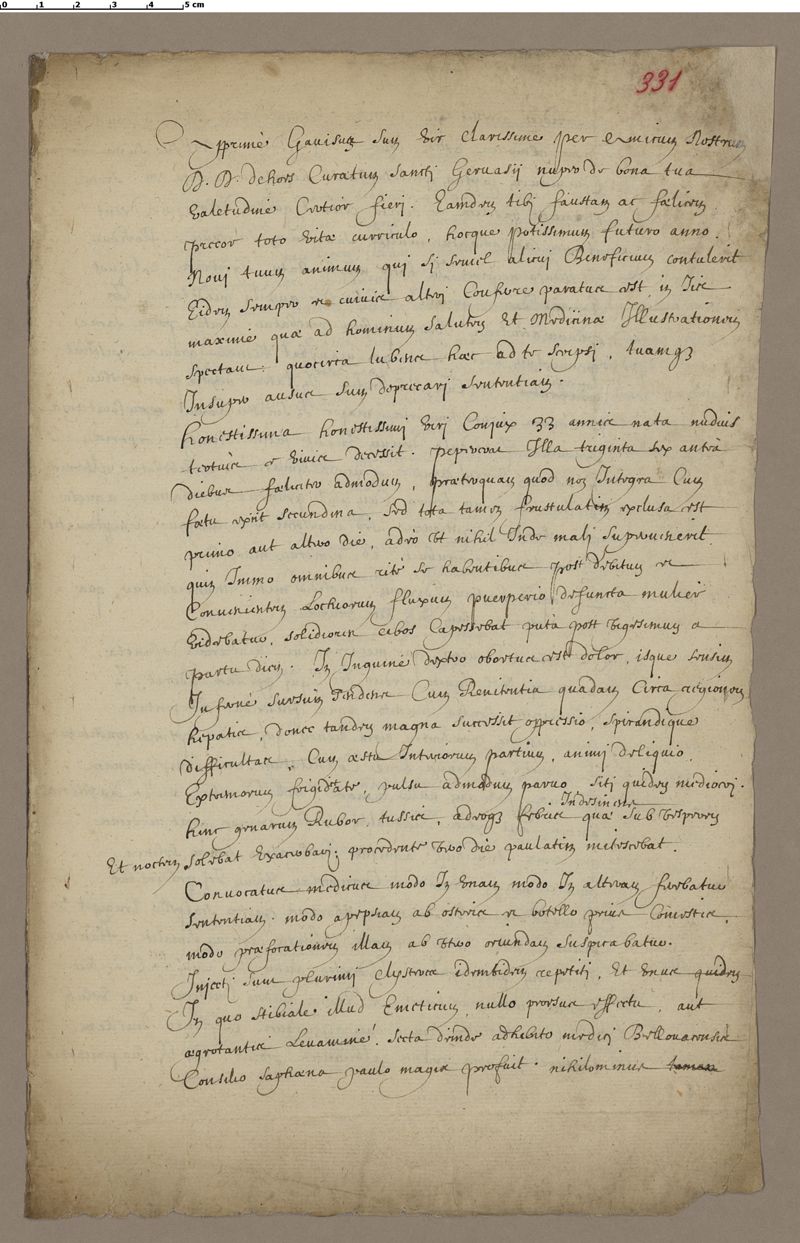 0 1 2 3 4 5 cm
331
Apprimè Gavisus sum vir clarissime per Amicum Nostrum
D. D. dehors Curatum sancti Gervasij nuper de bona tua
valetudine Certior fieri. Eamdem tibj faustam ac fælicem
precor toto vitæ curriculo, hocque potissimum futuro anno.
Novj tuum animum quj si semel alicuj Beneficium contulerit
Eidem semper et cuivis alterj Conferre paratus est, in Iis
maxime quæ ad hominum salutem Et Medicinæ Illustrationem
spectant: quocirca lubens hæc ad te scripsj, tuamq3
Insuper ausus sum deprecarj sententiam.
honestissima honestissimj virj Conjux 33 annis nata nudius
tertius è vivis decessit. pepererat Illa triginta sex anteà
diebus fæliciter admodum, præterquam quod non Integra Cum
fætu exiit secundina, sed tota tamen frustulatim exclusa est
primo aut altero die, adeò Vt nihil Inde malj supervenerit
quin Immo omnibus ritè se habentibus post debitum et
Convenientem Lochiorum fluxum puerperio defuncta mulier
videbatur, solidiores cibos Capessebat putà post vigesimum a
partu diem. In Inguine dextro obortus est dolor, isque sensim
Infernè sursum tendens Cum Renitentia quadam Circa regionem
hepatis, donec tandem magna successit oppressio, spirandique
difficultas, Cum æstu Interiorum partium, animj deliquio,
Extremorum frigiditate, pulsu admodum parvo, sitj quidem mediocrj.
hinc genarum Rubor, tussis, adeoq3 febris Indesinens quæ sub vesperem
Et noctem solebat Exacerbarj; procedente vero die paulatim mitescebat.
Convocatus medicus modo In vnam modo In alteram ferebatur
sententiam. modo apepsiam ab ostreis et botello prius Comestis,
modo præfocationem illam ab vtero oriundam suspicabatur.
Injectj sunt plurimj clysteres identidem repetitj, Et vnus quidem
In quo stibiale illud Emeticum, nullo prorsus effectu, aut
ægrotantis Levamine. Secta deinde adhibito medicj Bellovacensis
Consilio saphæna paulo magis profuit. nihilominus tamen